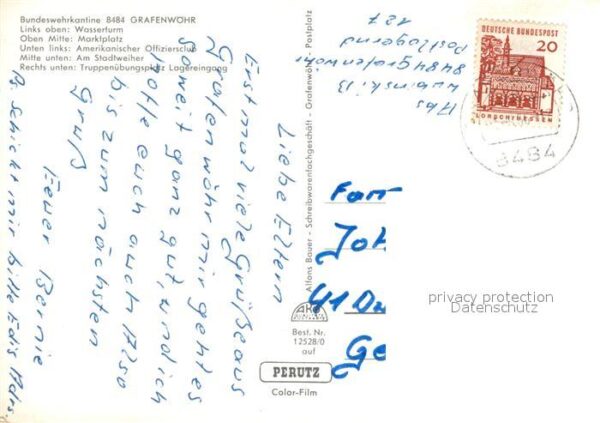 Bundeswehrkantine 8484 GRAFENWÖHR
Links oben: Wasserturm
Oben Mitte: Marktplatz
Unten links: Amerikanischer Offiziersclub
Mitte unten: Am Stadtweiher
Rechts unten: Truppenübungsplatz Lagereingang
Liebe Eltern
Erstmal viele Grüße aus
Grafenwöhr mir geht es
soweit ganz gut, und ich
hoffe euch auch Also
bis zum nächsten
Gruß
Euer Bernie
PS schickt mir bitte Edis Adrs.
Alfons Bauer - Schreibwarenfachgeschäft - Grafenwöhr - Postplatz
Abs
Kubinski B
8484 Grafenwöhr
Postlagernd
127
DEUTSCHE BUNDESPOST
20
LORSCH/HESSEN
8484
Fam
Joh
41 D
Ge
privacy protection
Datenschutz
AKO
Best. Nr.
12528/0
auf
PERUTZ
Color-Film